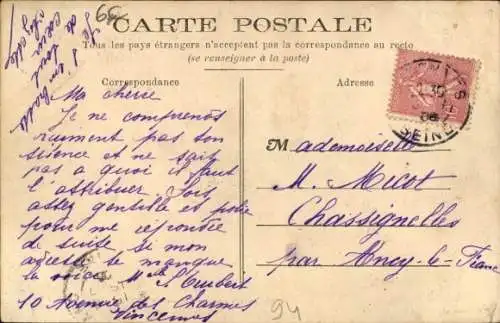 66
CARTE POSTALE
Tous les pays étrangers n'acceptent pas la correspondance au recto
(se renseigner à la poste)
Correspondance
Adresse
Ma cherre
Je ne comprends
vraiment pas ton
silence et ne sait
pas a quoi il faut
l'attribuer. Sois
assez gentille et polie
pour me répondre
de suite. Si mon
adresse te manque
la voici Mlle
10 Avenue des Charmes
Vincennes
Mademoiselle
M. Micot
Chassignelles
par Ancy-le-Franc
SEINE
94